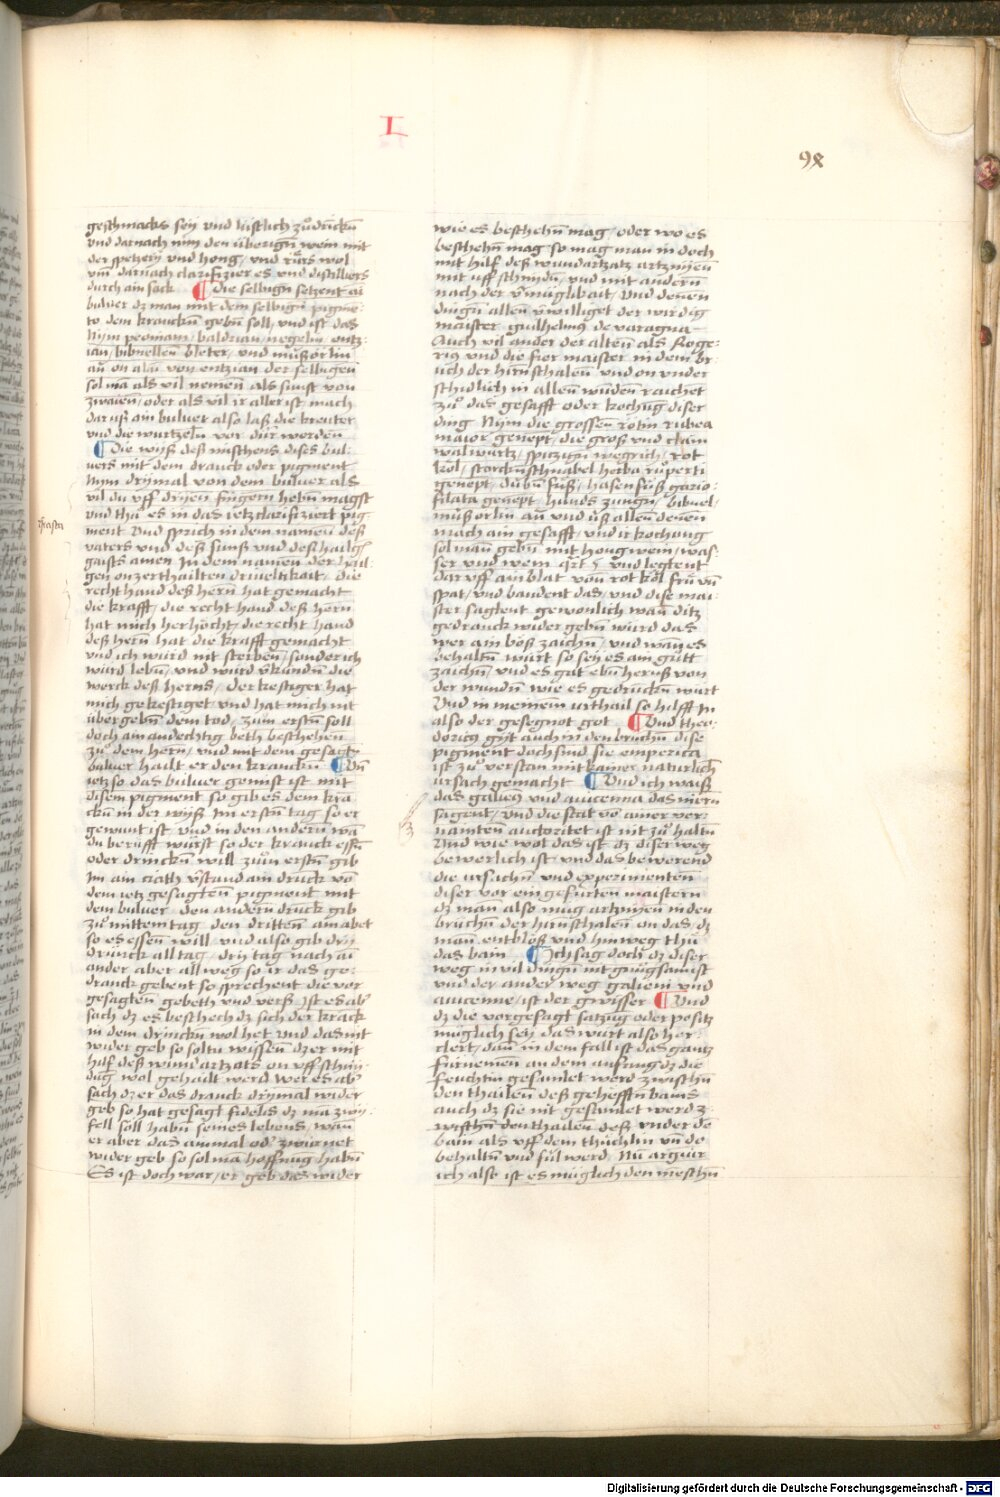 I
98
geschmacks sey vnd lustlich zů drinckñ
vnd darnach nim den überigñ wein mit
der spetzery vnd hong / vnd rürs wol
vm̄ darnach clarifizier es vnd distilliers
durch ain sack ¶ Die selbigñ setzent ai
buluer dz man mit dem selbigñ pigme-
to dem kranckñ gebñ soll / vnd ist das
Nym peoniam / baldrian / negelin entz-
ian / bibnellen bleter / vnd müßörlin
on alaū von entzian der selbigen
sol mā als vil nemen als sunst von
zwaien / oder als vil ir aller ist mach
daruß ain buluer also laß die kreuter
vnd die wurtzeln vor dürr werden
¶ Die wyß deß mischens dises bul-
uers mit dem dranck oder pigment
Nym drymal von dem buluer als
vil du vff dryen fingern hebñ magst
vnd thů es in das ietz clarifiziert pig-
ment Vnd sprich in dem namen deß
vaters vnd deß suns vnd deß hailgͤ
gaists amen In dem namen der hail-
gen onzerthailten driueltikait / die
recht hand deß hern̄ hat gemacht
die krafft / die recht hand deß hern̄
hat mich herhöcht / die recht hand
deß hern̄ hat die krafft gemacht
vnd ich würd nit sterben / sunder ich
würd lebñ / vnd würd v̄kündñ die
werck deß herns / der kestiger hat
mich gekestiget / vnd hat mich nit
übergebñ dem tod / zum erstñ soll
doch ain andechtig beth beschehen
zů dem hern̄ / vnd mit dem gesagtñ
buluer hailt er den kranckñ ¶ Vn̄
ietz so das buluer gemist ist mit
disem pigment so gib es dem krā
ckñ in der wyß Im erstñ tag so er
gewunt ist / vnd in den andern wā
du berüfft würst so der kranck essñ
oder drinckñ will zum erstñ gib
Im ain ciath v̄stand ain drück vō
dem ietz gesagten pigment mit
dem buluer den andern drück gib
zů mittemtag den dritten am abet
so es essen will vnd also gib dry
drünck all tag dry tag nach ai
ander aber all weg so ir das ge-
dranck gebent so sprechent die vor
gesagten gebeth vnd verß Ist es abͤ
sach dz es beschech dz sich der kranck
in dem drinckñ wol het vnd das nit
wider geb so soltu wissen dz er mit
hilf deß wundartzats on vffschny-
dūg wol gehailt werd Wer es abͤ
sach dz er das dranck drymal wider
geb so hat gesagt fidelis dz mā zwy-
fell soll habñ seines lebens / wan̄
er aber das ainmal odͤ zwirnet
wider geb so sol mā hoffnūg habñ
Es ist doch war / er geb das wider
wie es beschehñ mag / oder wo es
beschehñ mag / so mag man in doch
mit hilf deß wundartzatz artznyen
mit vff schnydñ / vnd mit andern̄
nach der v̄müglikait / Vnd denen
dingñ allen v̄williget der wirdig
maister guilhelmus de varagna
Auch vil ander der alten als Roge-
rius vnd die fier maister in dem br-
uch der hirnschalen vnd on vnder
schidlich in allen wūden raichent
zů das gesafft oder kochūg diser
ding Nym die grossen rötin rubea
maior genept / die groß vnd clain
walwurtz / spitzign wegrich / rot
köl / storckñschnabel herba růperti
genept / dubñ fůß / hasen fůß gario-
filata genept / hunds zungñ / bibnel-
müßörlin an̄ vnd uß allen denen
mach ain gesafft / vnd ir kochung
sol man̄ gebñ mit hongwein / was-
ser vnd wein vnd legtent
daruff ain blat von rot köl frü vn̄
spat / vnd bandent das / vnd dise mai-
ster sagtent gewonlich wan̄ ditz
gedranck wider gebñ würd das
wer ain böß zaichñ / vnd wan̄ es
behaltñ würt so sey es ain gütt
zaichñ / vnd es gat ebñ heruß von
der wundñ wie es gedrūckñ würt
Vnd in meinem vrthail so hilfft In
also der gesegnot got ¶ Vnd theo-
doricꝰ gyt auch in den bruchñ dise
pigment doch sind sie emperica
ist zů verstan mit kainer naturlichͤ
vrsach gemacht ¶ Vnd ich waiß
das galieꝰ vnd auicenna das nie
sagent / vnd die stat vō ainer ver-
nainten auctoritet ist nit zů haltñ
Vnd wie wol das ist dz diser weg
bewerlich ist / vnd das bewerend
die vrsachñ vnd experimenten
diser vor eingefürten maistern
dz man̄ also mūg artznyen in den
bruchñ der hirnschalen on das / dz
man̄ entblöß vnd hinweg thü
das bain ¶ Ich sag doch dz diser
weg in vil dingñ nit gnūgsam ist
vnd der ander weg galieni vnd
auicenne / ist der gwisser ¶ Vnd
dz die vorgesagt satzūg oder positz
müglich sey das würt also her-
clert / dan̄ in dem fall ist das gantz
fürnemen an dem anfang dz die
feuchtin gesamlet werd zwischñ
den thailen deß gehefftñ bains
auch dz sie nit gesamlet werd z-
wischñ den thailen deß vnder de
bain als vff dem thüchlin vn̄ de
behaltñ vnd fül werd Nū arguir
ich also ist es müglich den meschñ